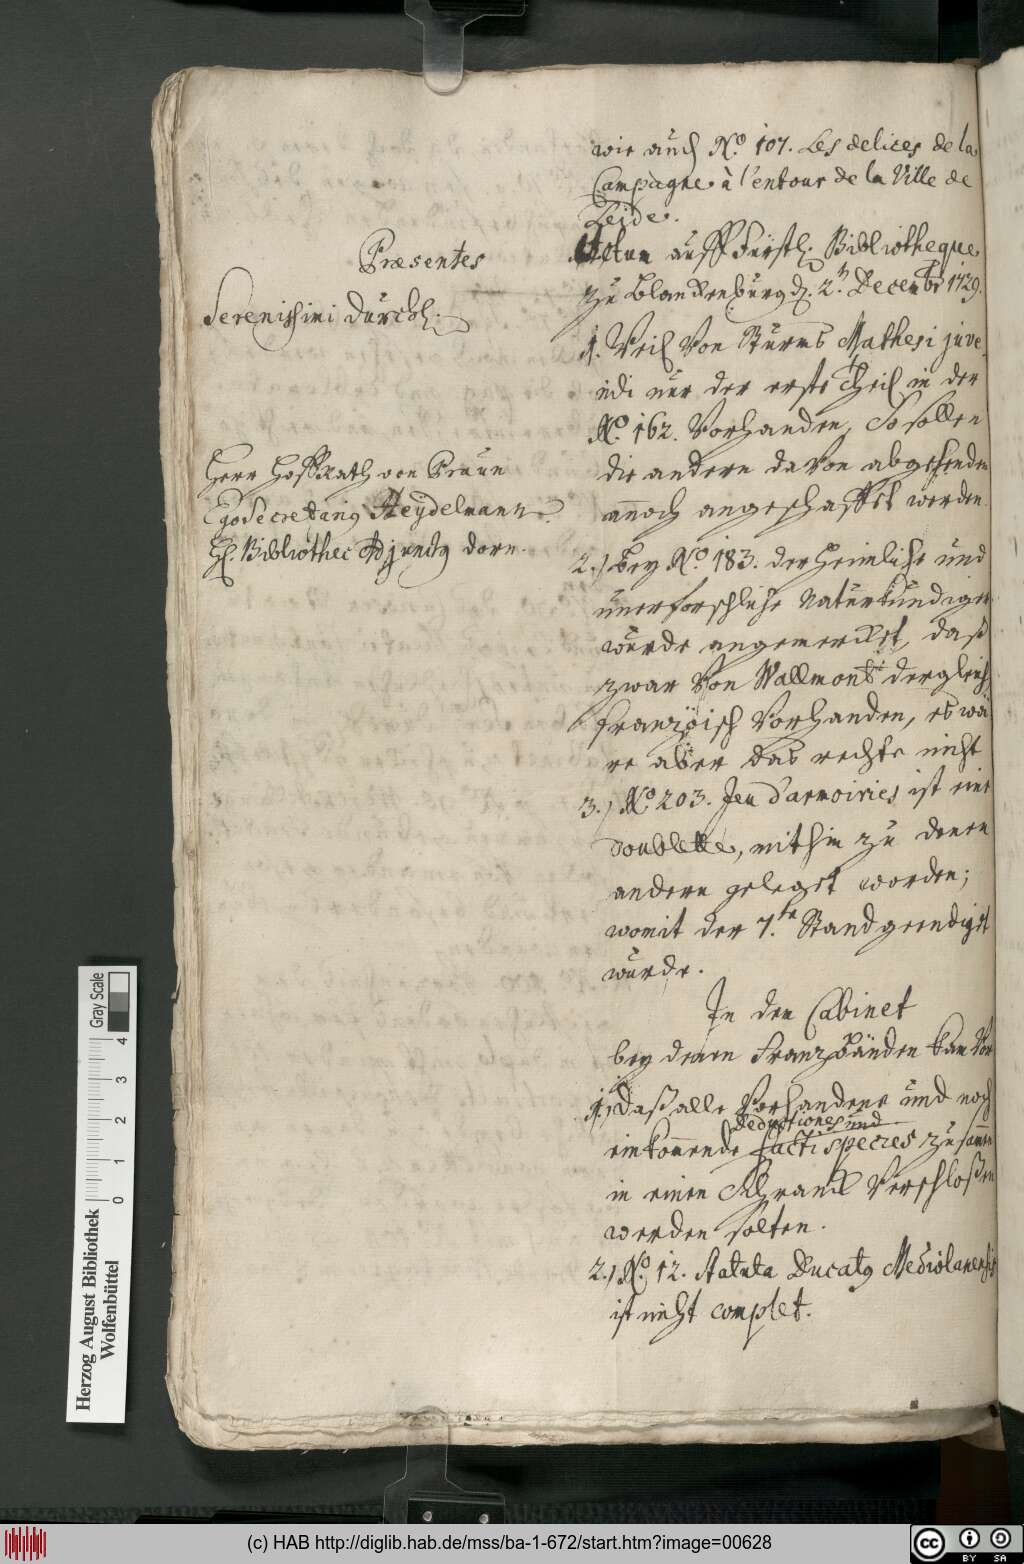 wie auch No. 107. Les delices de la
Campagne à l'entour de la Ville de
Leide.
Præsentes
Serenissimi Durchl.
Herr Hoff Rath von Praun
Ego Secretarius Heydelmann
H. Bibliothec Adjunctus dorn.
Actum auff Fürstl. Bibliotheque
zu Blanckenburg d. 2. Decembr 1729.
1. Weil von Sturms Mathesi juve-
nili nur der erste Theil in der
No. 162. Vorhanden, So sollen
die andern davon
annoch angeschafft werden
2.) Bey No. 183. der heimliche und
unerforschliche Naturkündiger
wurde angemercket, daß
zwar von Wallmont dergleich
französisch Vorhanden, es wä
re aber das rechte nicht
3.) No. 203. Jeu d'armoiries ist eine
doublette, mithin zu denen
andern geleget worden;
womit der 7.te Stand geendiget
wurde.
In den Cabinet
bey denen Franzbänden kam Vor
1.) Daß alle Vorhandene und noch
Deductiones und
einkommende facti species zusammen
in einen Schranck Verschloßen
werden solten.
2.) No. 12. Statuta Ducatus Mediolanensis
ist nicht complet.
Gray Scale
0 1 2 3 4
Herzog August Bibliothek
Wolfenbüttel
(c) HAB http://diglib.hab.de/mss/ba-1-672/start.htm?image=00628
cc BY SA